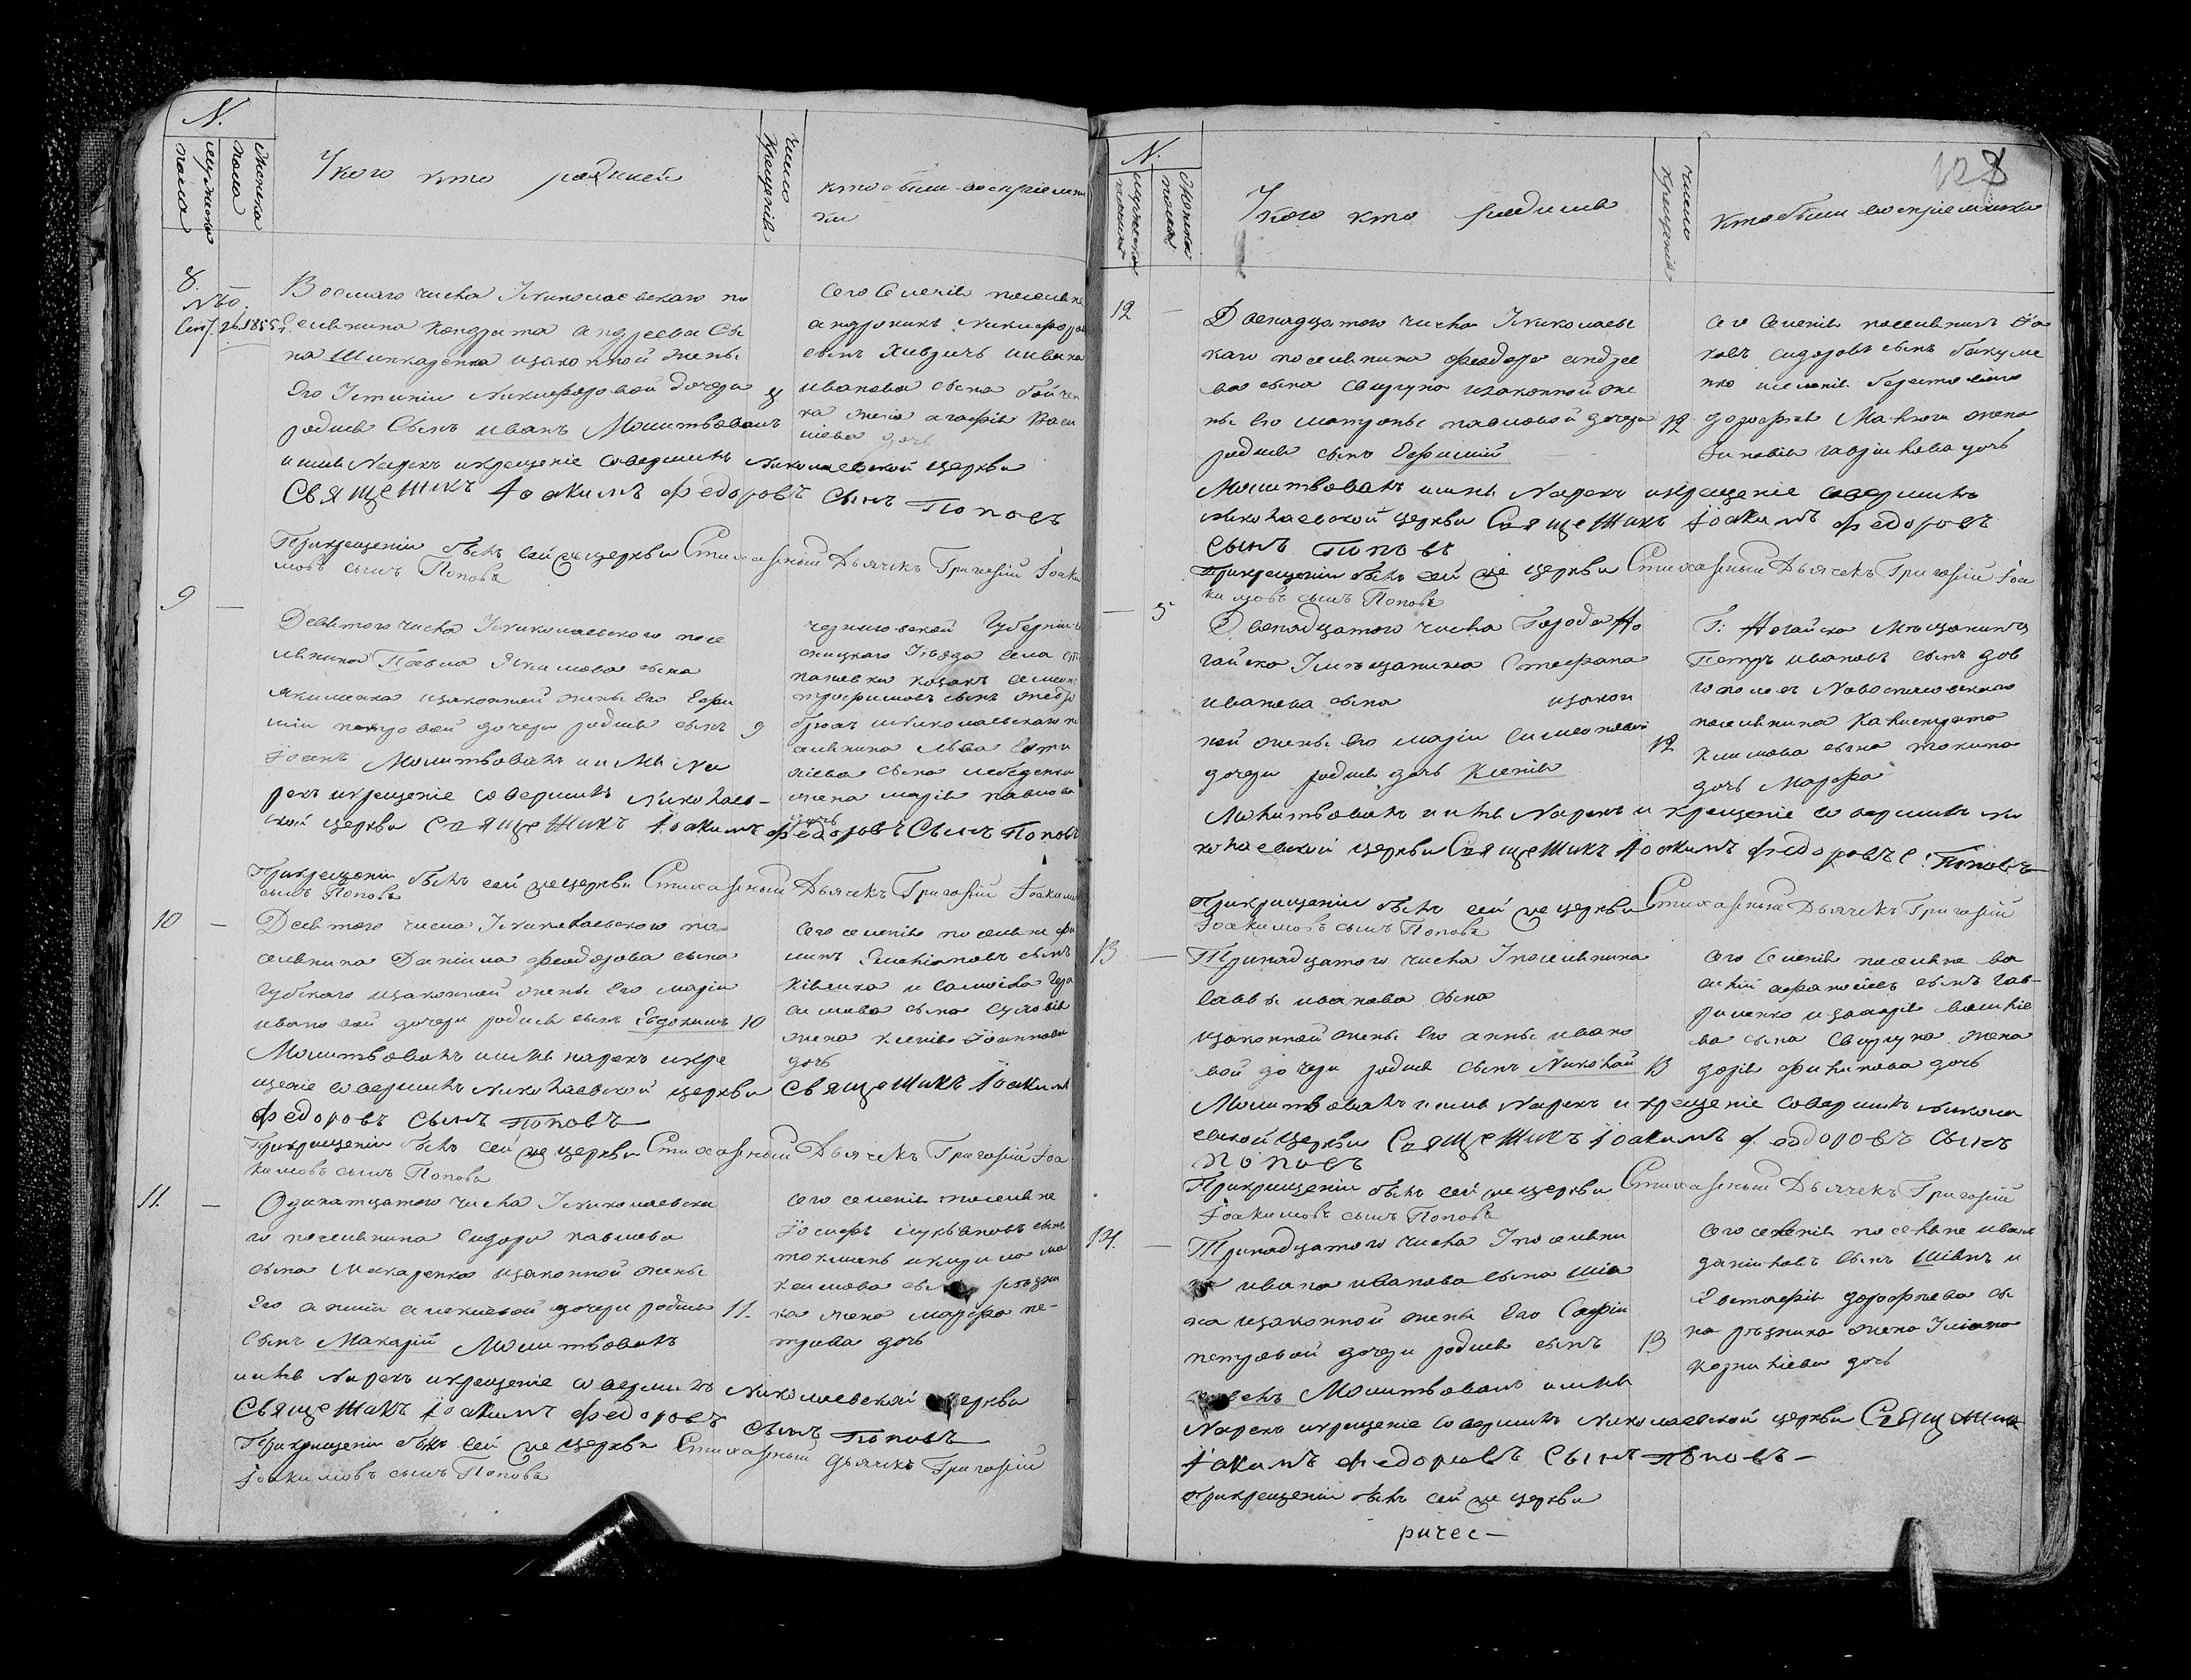 N.
мужеска пола
женска пола
У кого кто родился
число крещенія
кто были воспріемни
ки
8.
Сент. 26. 1855 г.
Восмаго числа У николаевскаго по
селянина Кондрата андреева сы
на Шипкаренка изаконной жены
Его Устиніи Никифоровой дочери
родился Сынъ иванъ Молитвовалъ
имя Нарекъ икрещеніе совершилъ Николаевской церкви
СвящеННикъ Іоакимъ Федоровъ Сынъ Поповъ
Прикрещеніи былъ сей же церкви Стихарный Дьячекъ Григорій Іоаки
мовъ сынъ Поповъ
8
Сего Селенія поселяне
андроникъ Никифоро
сынъ
иванова сына бойчен
ка жена агафія Васи
лева дочь
9
Девятого числа У николаевского посе
лянина Павла Якимова сына
Якименка изаконной жены Его Ефи
міи петровой дочери родился сынъ
Іоанъ Молитвовалъ имя На
рекъ икрещеніе совершилъ Николаев-
ской церкви СвящеННикъ Іоакимъ Федоровъ Сынъ Поповъ
Прикрещеніи былъ сей же церкви Стихарный Дьячекъ Григорій Іоакимо
сынъ Поповъ
9
черниговской Губерніи
Уезда села
козакъ семенъ
трофимовъ сынъ
николаевскаго по
селянина Льва
сына лебеденка
жена марія павлова
дочь
10
Девятого числа У николаевского по
селянина Даніила Феодорова сына
Губскаго изаконной жены Его маріи
ивановой дочери родился сынъ Евдокимъ
Молитвовалъ имя нарекъ икре
щеніе совершилъ Николаевской церкви СвящеННикъ Іоакимъ
Федоровъ Сынъ Поповъ
Прикрещеніи былъ сей же церкви Стихарный Дьячекъ Григорій Іоа
кимовъ сынъ Поповъ
10
Сего селенія поселяне фи
липъ Емеліановъ сынъ
и самойла Гера
симова сына
жена ксенія Іоаннова
дочь
11.
Одинатцатого числа У николаевска
го поселянина Сидора павлова
сына Макаренка изаконной жены
Его анны алексіевой дочери родился
Сынъ Макарій Молитвовалъ
имя Нарекъ икрещеніе совершилъ Николаевской церкви
СвящеННикъ Іоакимъ Федоровъ Сынъ Поповъ
Прикрещеніи былъ сей же церкви Стихарный Дьячекъ Григорій
Іоакимовъ сынъ Поповъ
11.
Сего селенія поселяне
Іосифъ лукьяновъ сынъ
икирила ма
ксимова сына
ка жена марфа пе-
трова дочь
N.
мужеска пола
женска пола
У кого кто родился
число крещенія
128
Кто были воспріемники
12
Двенадцатого числа У николаевс
каго поселянина Феодора андрее
ва сына Свируна изаконной же
ны Его матроны павловой дочери
родился сынъ Ефимій
Молитвовалъ имя Нарекъ икрещеніе совершилъ
николаевской церкви СвящеННикъ Іоакимъ Федоровъ
Сынъ Поповъ
Прикрещеніи былъ сей же церкви Стихарный Дьячекъ Григорій Іоа
кимовъ сынъ Поповъ
12
Сего Селенія поселянинъ Іа
ковъ сидоровъ сынъ бакуме
нко иселенія берестового
дорофея Малюги жена
Зиновія гаврилова дочь
5
Двенадцатого числа Города Но
гайска У мещанина Стефана
иванова сына изакон
ной жены Его маріи симеоновой
дочери родися дочь Ксенія
Молитвовалъ имя Нарекъ и крещеніе совершилъ ни
колаевской церкви СвящеННикъ Іоакимъ Федоровъ с: Поповъ
Прикрещеніи былъ сей же церкви Стихарный Дьячекъ Григорій
Іоакимовъ сынъ Поповъ
12
Г: Ногайска Мещанинъ
Петръ ивановъ сынъ дов
гополовъ Новоспасовского
поселянина Калистрата
Климова сына токина
дочь Марфа
13
Тринадцатого числа У поселянина
Саввы иванова сына
изаконной жены Его анны ивано
вой дочери родися Сынъ Николай
Молитвовалъ имя Нарекъ и крещеніе совершилъ никола
евской церкви СвящеННикъ Іоакимъ Федоровъ Сынъ
Поповъ
Прикрещеніи былъ сей же церкви Стихарный Дьячекъ Григорій
Іоакимовъ сынъ Поповъ
13
Сего Селенія поселяне ва
силій афанасіевъ сынъ Гав-
риленко изахарія василіе
ва сына Свируна жена
дарія филипова дочь
14.
Тринадцатого числа У поселяни
ивана иванова сына Шія
на изаконной жены Его Софіи
петровой дочери родися сынъ
Молитвовалъ имя
Нарекъ икрещеніе совершилъ Николаевской церкви СвящеННик
Іакимъ Федоровъ Сынъ Поповъ-
Прикрещеніи былъ сей же церкви
13
Сего селенія поселяне иванъ
даніиловъ Сынъ Шіянъ и
Евстафія дорофеева сы
на резника жена Уліана
корниліева дочь
ричес-